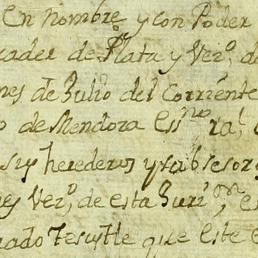 En nombre y con Poder
cader de Plata y Vezº, de
nes de Julio del Corriente
o de Mendoza Essno, ral,
sus herederos y subsesor
es Vezº, de esta Juriz.on, e
nado Tesustle que este e